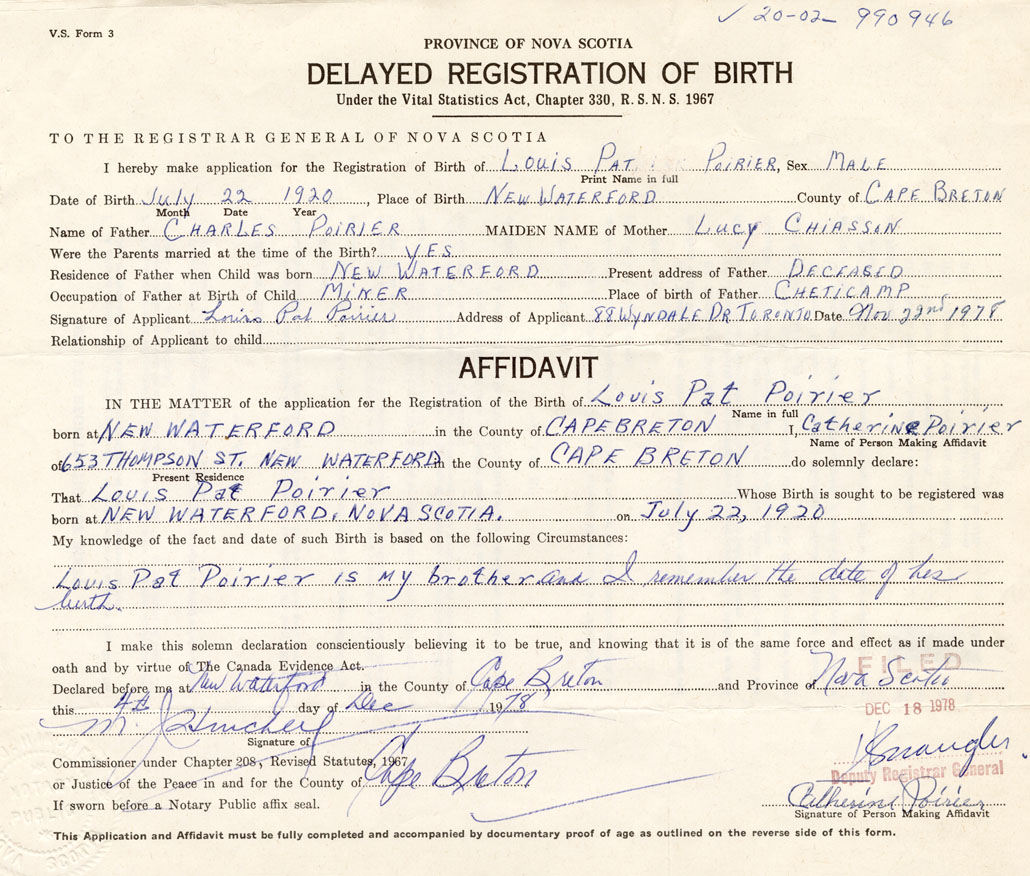 V.S. Form 3
✓ 20-02 990946
PROVINCE OF NOVA SCOTIA
DELAYED REGISTRATION OF BIRTH
Under the Vital Statistics Act, Chapter 330, R. S. N. S. 1967
TO THE REGISTRAR GENERAL OF NOVA SCOTIA
I hereby make application for the Registration of Birth of LOUIS PAT POIRIER, Sex MALE
Print Name in full
Date of Birth July 22 1920, Place of Birth NEW WATERFORD County of CAPE BRETON
Month Date Year
Name of Father CHARLES POIRIER MAIDEN NAME of Mother LUCY CHIASSON
Were the Parents married at the time of the Birth? YES
Residence of Father when Child was born NEW WATERFORD Present address of Father DECEASED
Occupation of Father at Birth of Child MINER Place of birth of Father CHETICAMP
Signature of Applicant Louis Pat Poirier Address of Applicant 88 WYNDALE DR TORONTO Date Nov 22nd 1978
Relationship of Applicant to child
AFFIDAVIT
IN THE MATTER of the application for the Registration of the Birth of Louis Pat Poirier
Name in full
born at NEW WATERFORD in the County of CAPE BRETON I, Catherine Poirier
Name of Person Making Affidavit
of 653 THOMPSON ST. NEW WATERFORD in the County of CAPE BRETON do solemnly declare:
Present Residence
That Louis Pat Poirier Whose Birth is sought to be registered was
born at NEW WATERFORD, NOVA SCOTIA. on July 22, 1920
My knowledge of the fact and date of such Birth is based on the following Circumstances:
Louis Pat Poirier is my brother and I remember the date of his
birth.
I make this solemn declaration conscientiously believing it to be true, and knowing that it is of the same force and effect as if made under
oath and by virtue of The Canada Evidence Act.
FILED
Declared before me at New Waterford in the County of Cape Breton and Province of Nova Scotia
this 4th day of Dec 1978
DEC 18 1978
Signature of
Commissioner under Chapter 208, Revised Statutes, 1967
or Justice of the Peace in and for the County of Cape Breton
Deputy Registrar General
If sworn before a Notary Public affix seal.
Catherine Poirier
Signature of Person Making Affidavit
This Application and Affidavit must be fully completed and accompanied by documentary proof of age as outlined on the reverse side of this form.